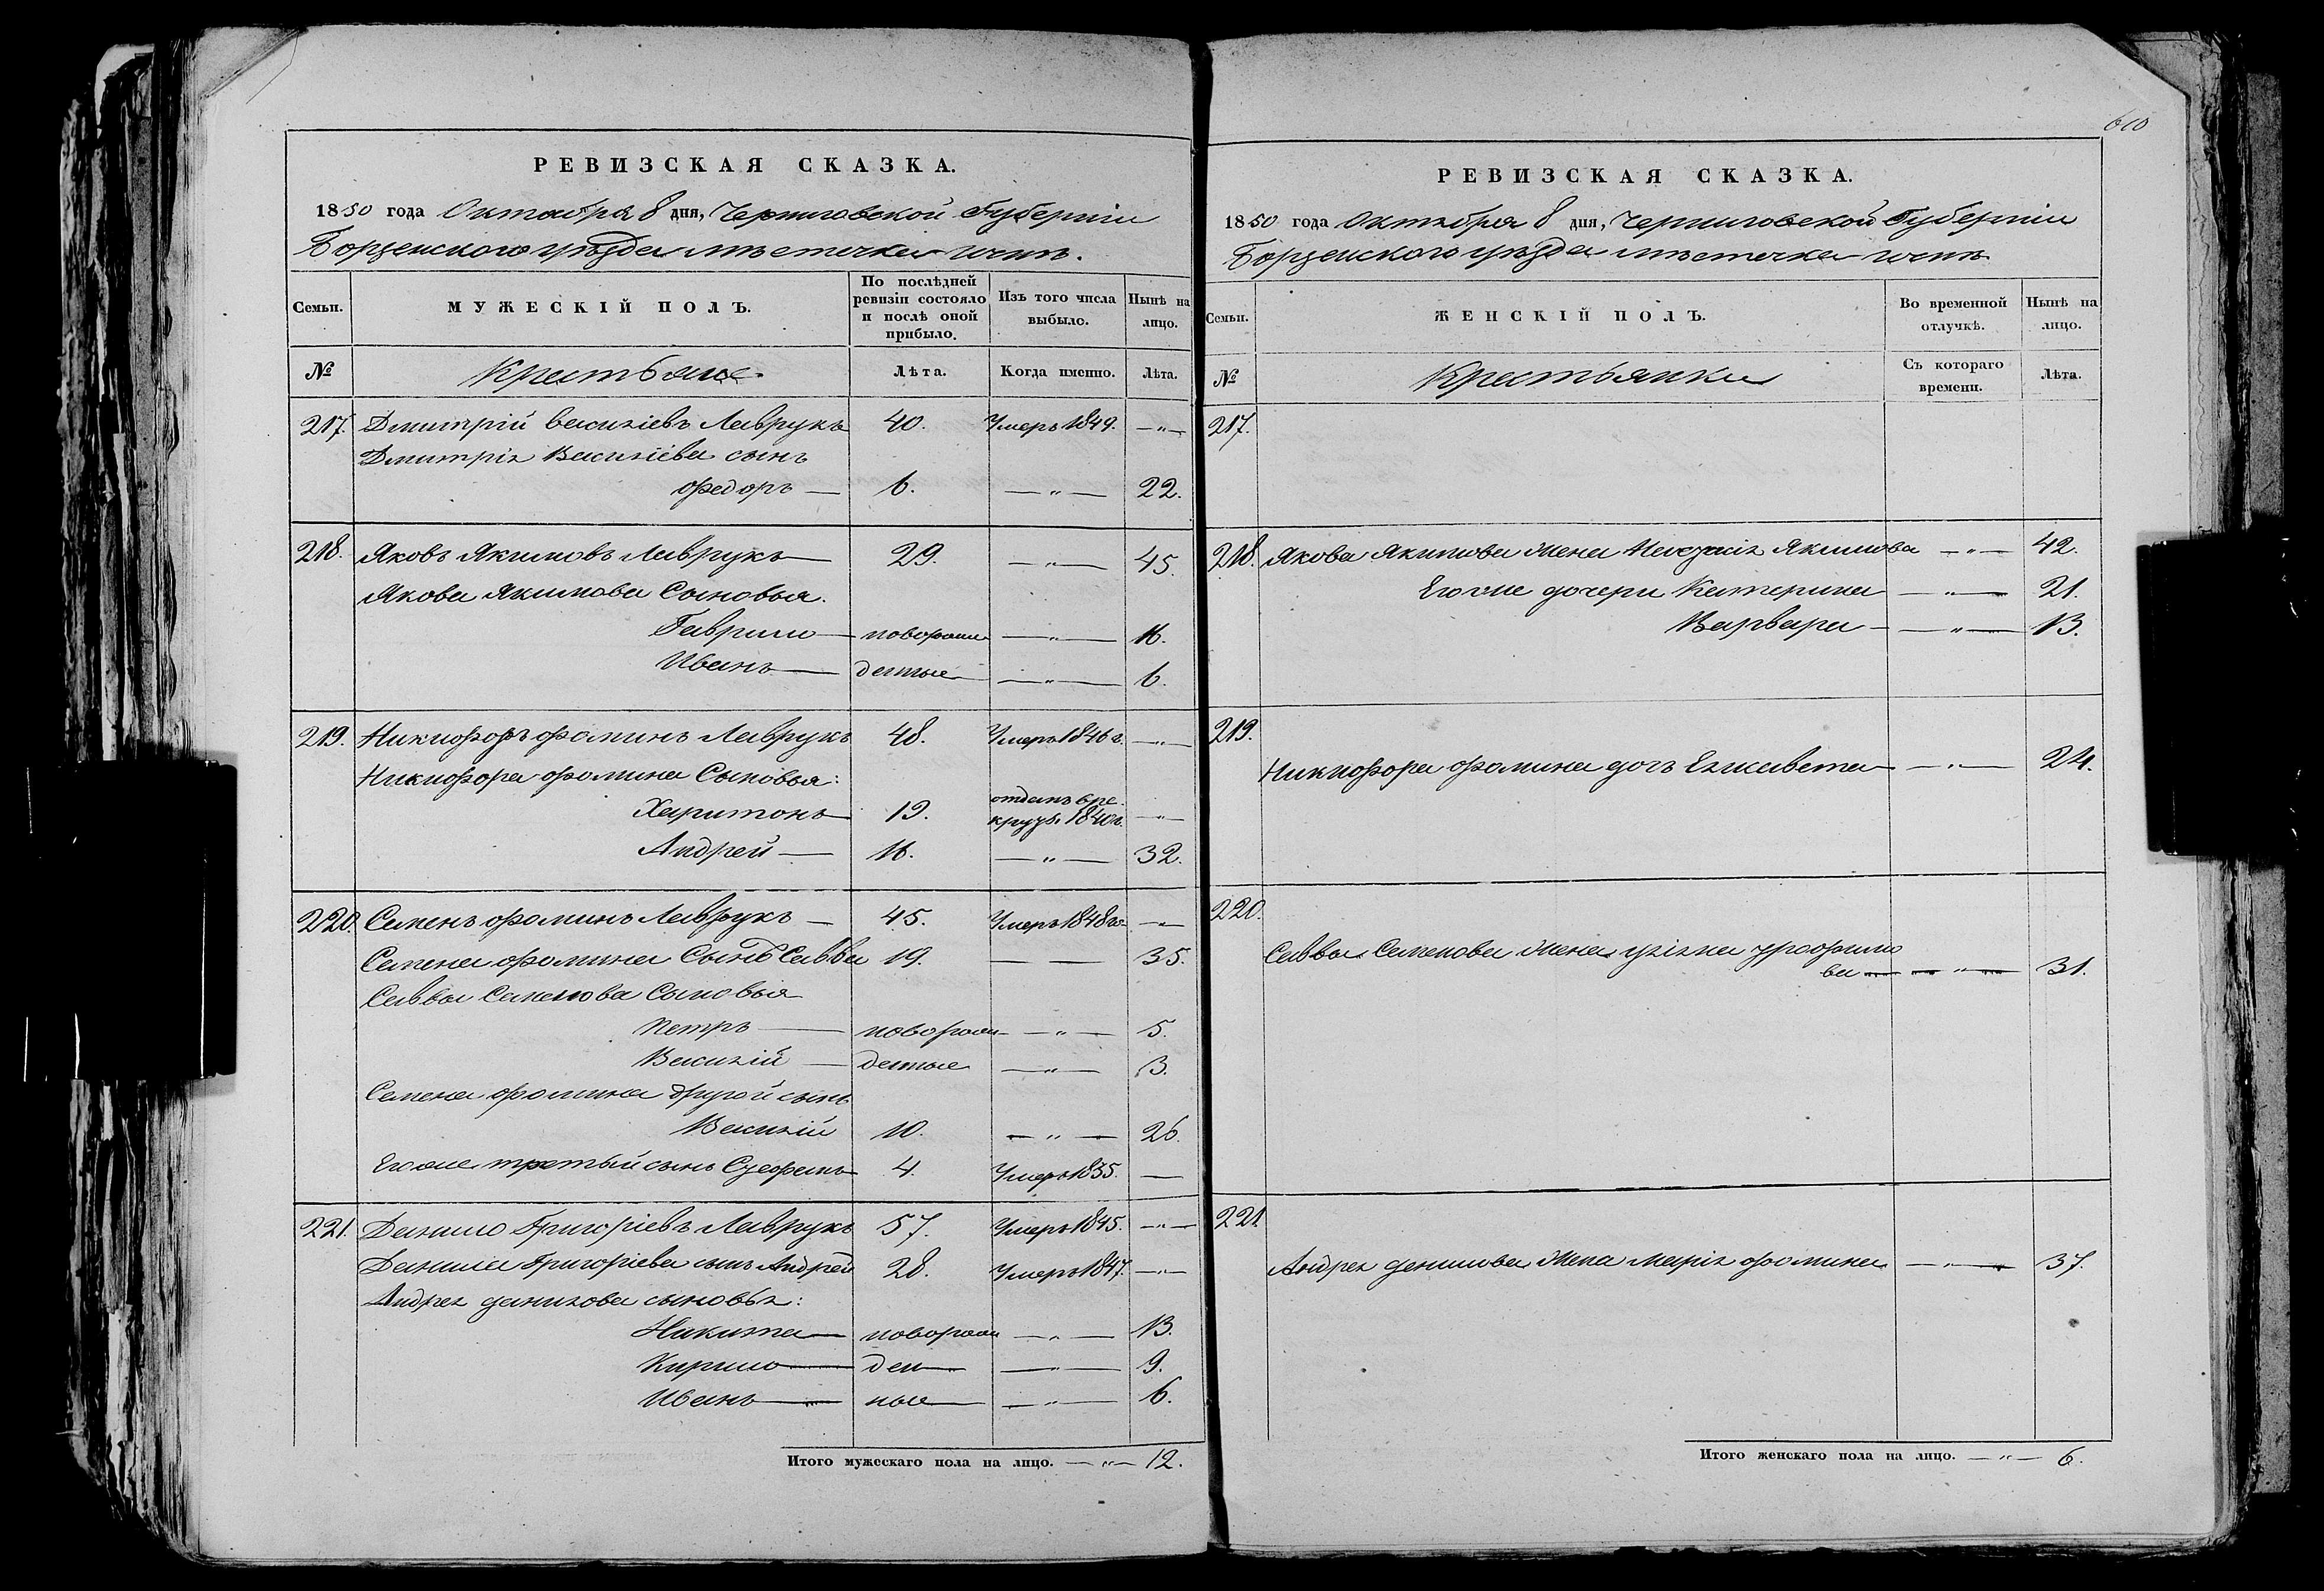 РЕВИЗСКАЯ СКАЗКА.
1850 года Октября 8 дня, Черниговской Губерніи
Борзенского уѣзда мѣстечка Ични.
Семьи. МУЖЕСКІЙ ПОЛЪ. По послѣдней ревизіи состояло и послѣ оной прибыло. Изъ того числа выбыло. Нынѣ на лицо.
№ Крестьяне. Лѣта. Когда именно. Лѣта.
217. Дмитрій Василіевъ Лаврукъ 40. Умеръ 1849. —"—
Дмитрія Василіева сынъ
Федоръ — 6. —"— 22.
218. Яковъ Якимовъ Лаврукъ — 29. —"— 45.
Якова Якимова Сыновья.
Гаврило — новорож —"— 16.
Иванъ — денные —"— 6.
219. Никифоръ Фоминъ Лаврукъ 48. Умеръ 1846 г. —"—
Никифора Фомина Сыновья:
Харитонъ 19. отданъ в ре-
круты 1840 г. —"—
Андрей — 16. —"— 32.
220. Семенъ Фоминъ Лаврукъ — 45. Умеръ 1848 го —"—
Семена Фомина Сынъ Савва 19. — — 35.
Саввы Семенова Сыновья
Петръ — новорож —"— 5.
Василій — денные —"— 3.
Семена Фомина другой сынъ
Василій 10. —"— 26.
Его же третый сынъ 4. Умеръ 1835. —
221. Данило Григоріевъ Лаврукъ 57. Умеръ 1845. —"—
Данила Григоріева сынъ Андрей 28. Умеръ 1847. —"—
Андрея Данилова сыновья:
Никита — новорож —"— 13.
Кирило — ден —"— 9.
Иванъ — ные —"— 6.
Итого мужескаго пола на лицо. —"— 12.
610
РЕВИЗСКАЯ СКАЗКА.
1850 года Октября 8 дня, Черниговской Губерніи
Борзенского уѣзда мѣстечка Ични
Семьи. ЖЕНСКІЙ ПОЛЪ. Во временной отлучкѣ. Нынѣ на лицо.
№ Крестьянки Съ котораго времени. Лѣта.
217.
218. Якова Якимова жена Якимова —"— 42.
Его же дочери Катерина —"— 21.
Варвара —"— 13.
219.
Никифора Фомина дочь Елисавета —"— 24.
220.
Саввы Семенова жена
ва —"— 31.
221.
Андрея Данилова жена Марія Фомина —"— 37.
Итого женскаго пола на лицо. —"— 6.